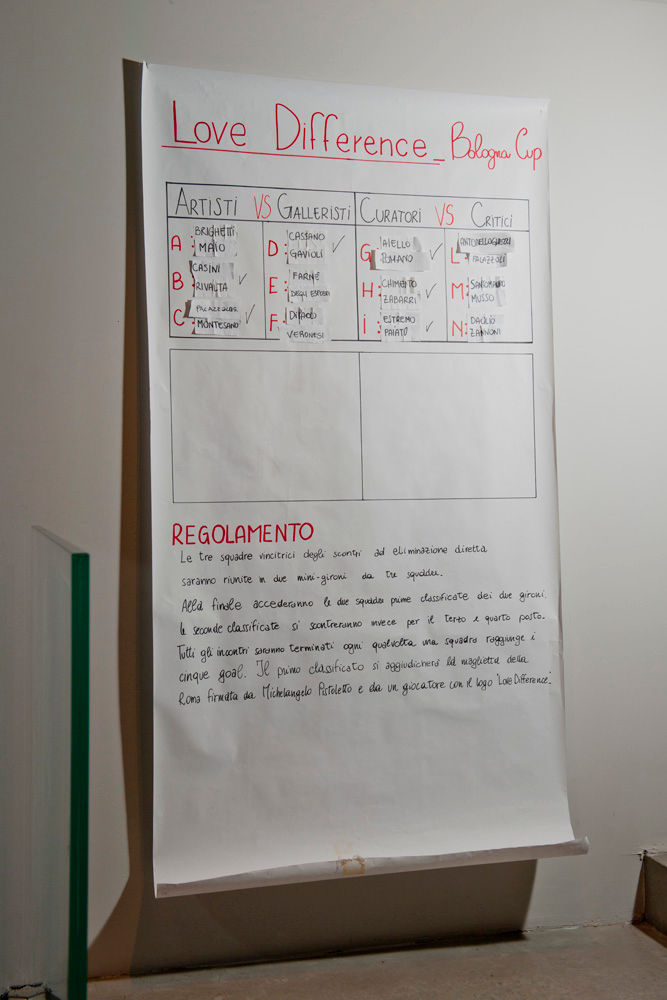 Love Difference_Bologna Cup
ARTISTI VS GALLERISTI CURATORI VS CRITICI
A: BRIGHETTI MAIO
D: CASSANO GAVIOLI ✓
G: AIELLO ROMANO ✓
L: ANTONELLO GHEZZI PALAZZOLI
B: CASINI RIVALTA ✓
E: FARNÈ DEGLI ESPOSTI
H: CHIMENTO ZABARRI ✓
M: SANROMANO MUSSO
C: PALAZZOLO MONTESANO ✓
F: DIPAOLO VERONESI
i: ESTREMO PAIATO ✓
N: DAOLIO ZANNONI
REGOLAMENTO
Le tre squadre vincitrici degli scontri ad eliminazione diretta
saranno riunite in due mini-gironi da tre squadre.
Alla finale accederanno le due squadre prime classificate dei due gironi.
le seconde classificate si scontreranno invece per il terzo e quarto posto.
Tutti gli incontri saranno terminati ogni qualvolta una squadra raggiunge i
cinque goal. Il primo classificato si aggiudicherà la maglietta della
Roma firmata da Michelangelo Pistoletto e da un giocatore con il logo "Love Difference".